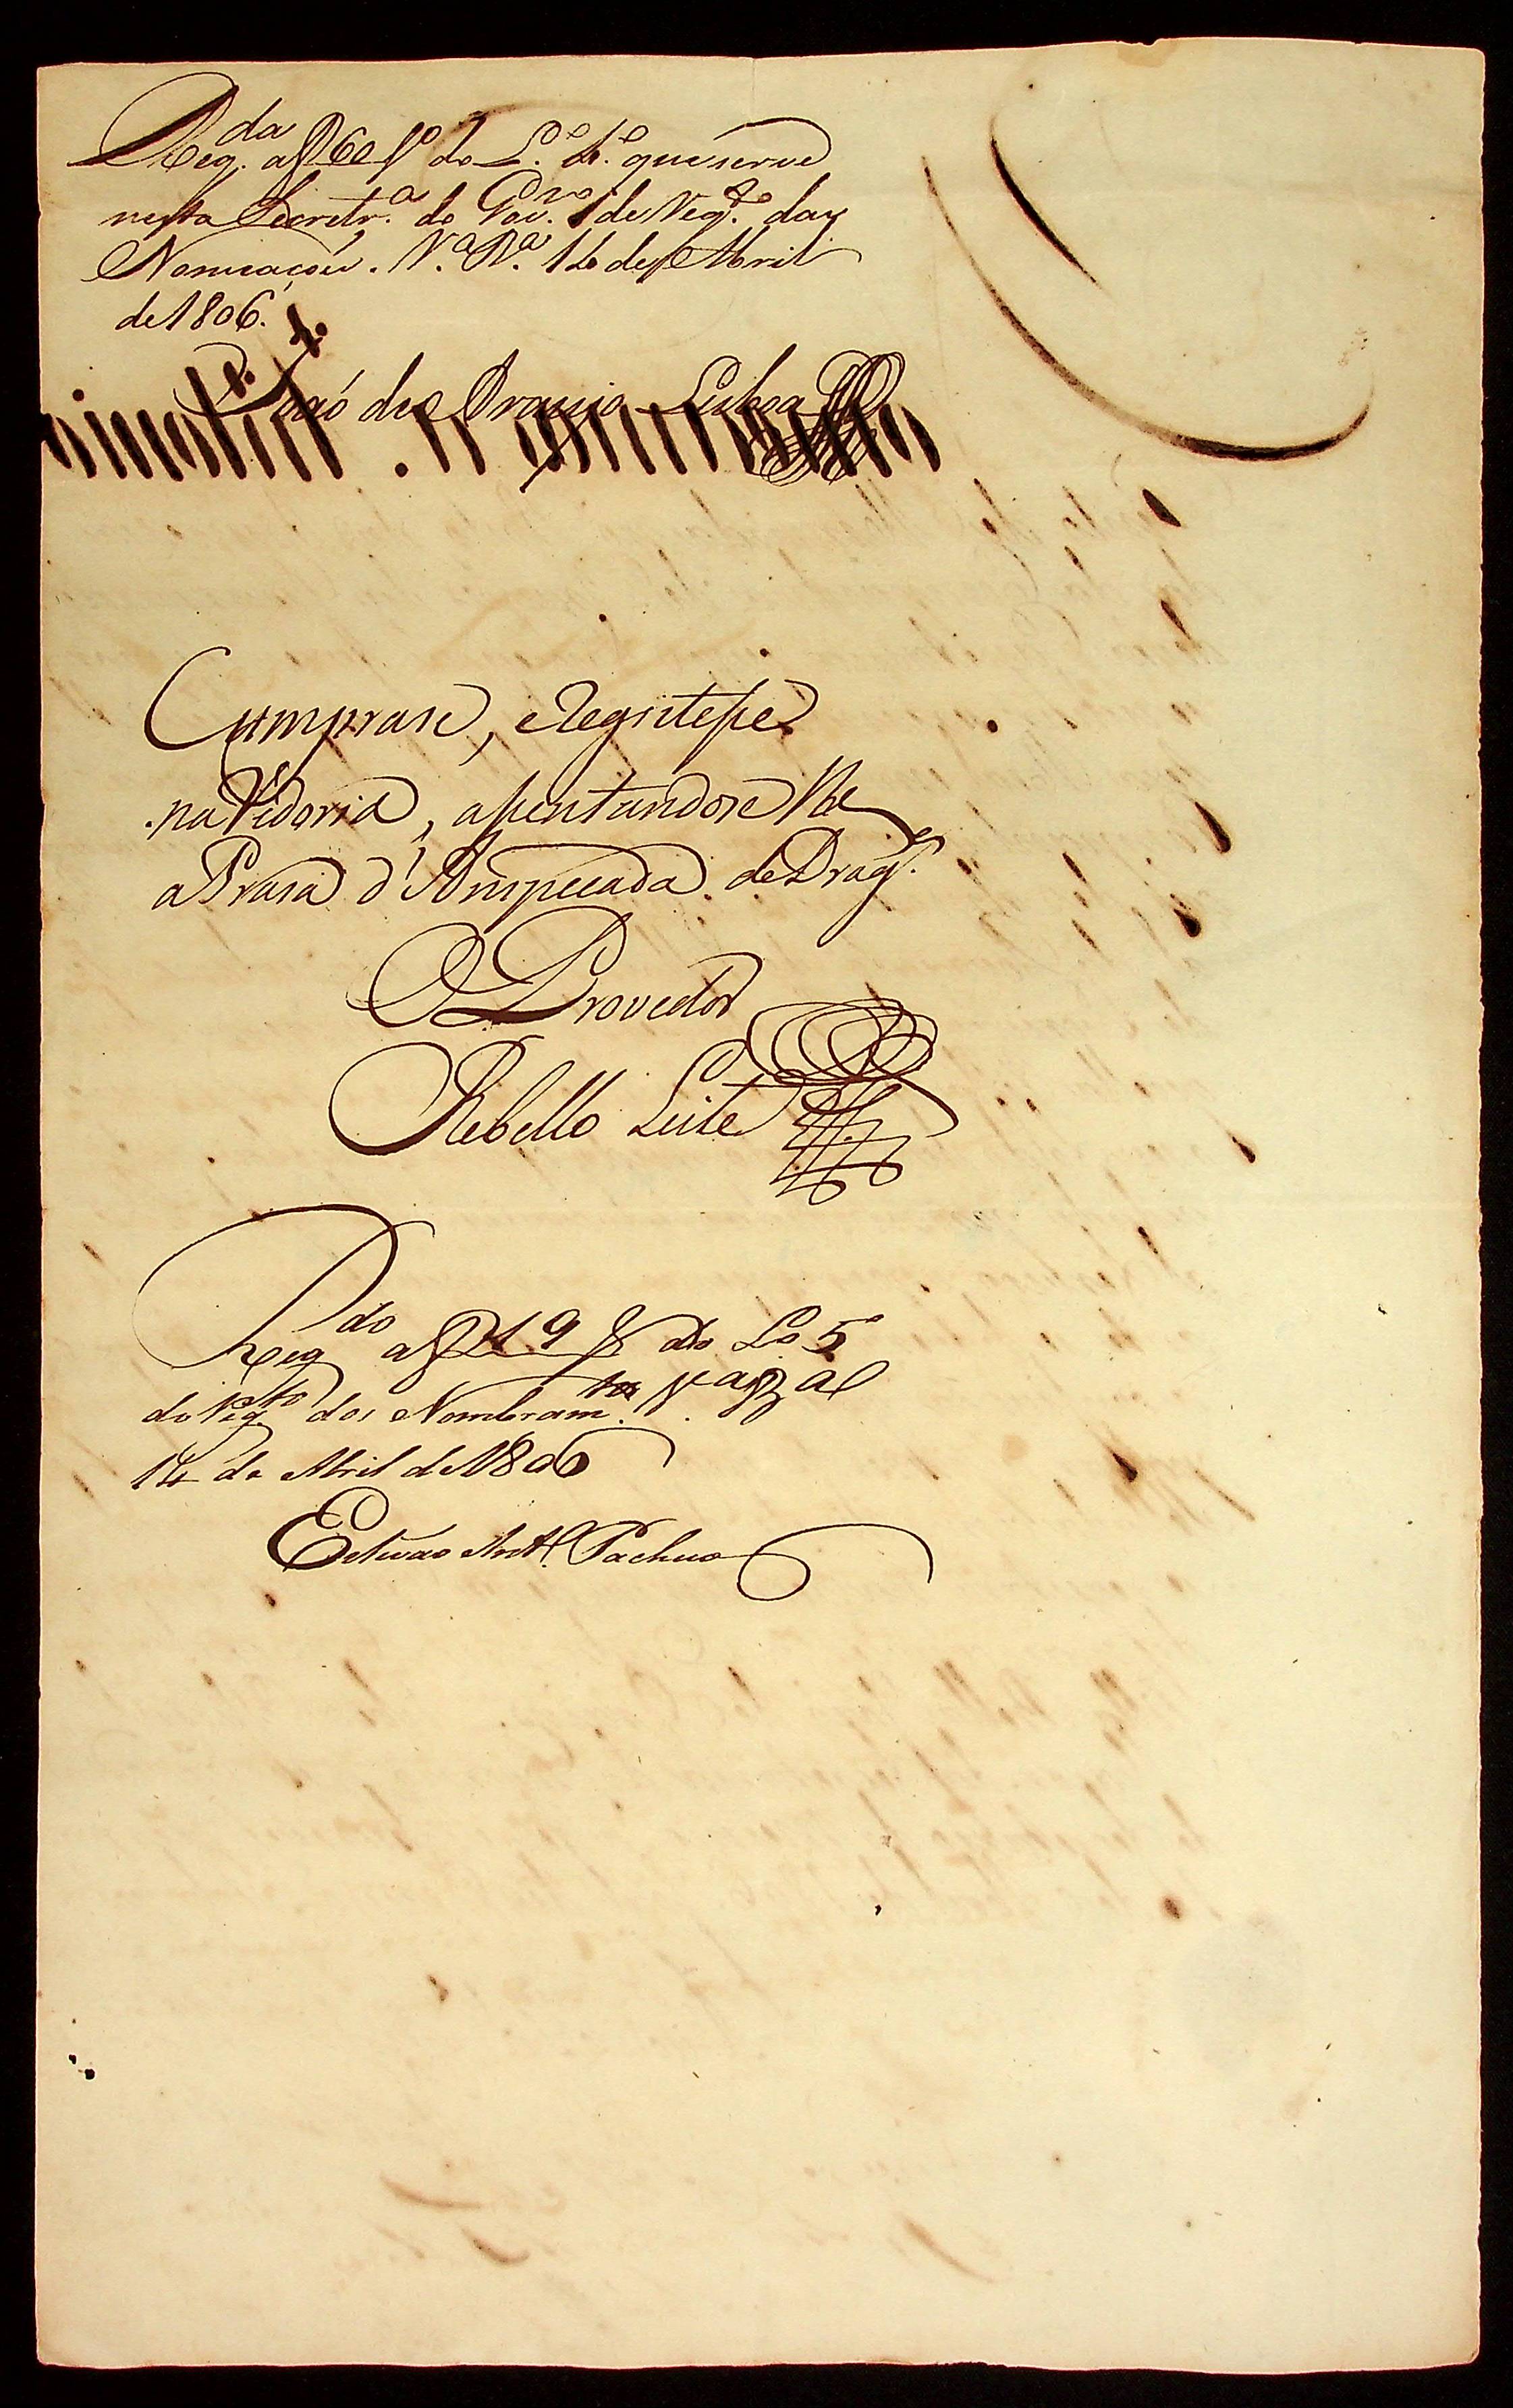 Reg.da a f 60 v.o do L.o 4.o que serve
nesta Secretr.a do Gov.no de Reg.to das
Nomeaçoens. V.a R.a 14 de Abril
de 1806.
João de Araujo Lisboa
Cumprase, e Registese
na Vedoria, asentandose lhe
a Prasa d'Ampecada de Drag.s
O Provedor
Rebello Leite
Reg.do a f 219 v do L.o 5.o
do Reg.to dos Nombram.tos
14 de Abril de 1806
Estevão Ant.o Pacheco